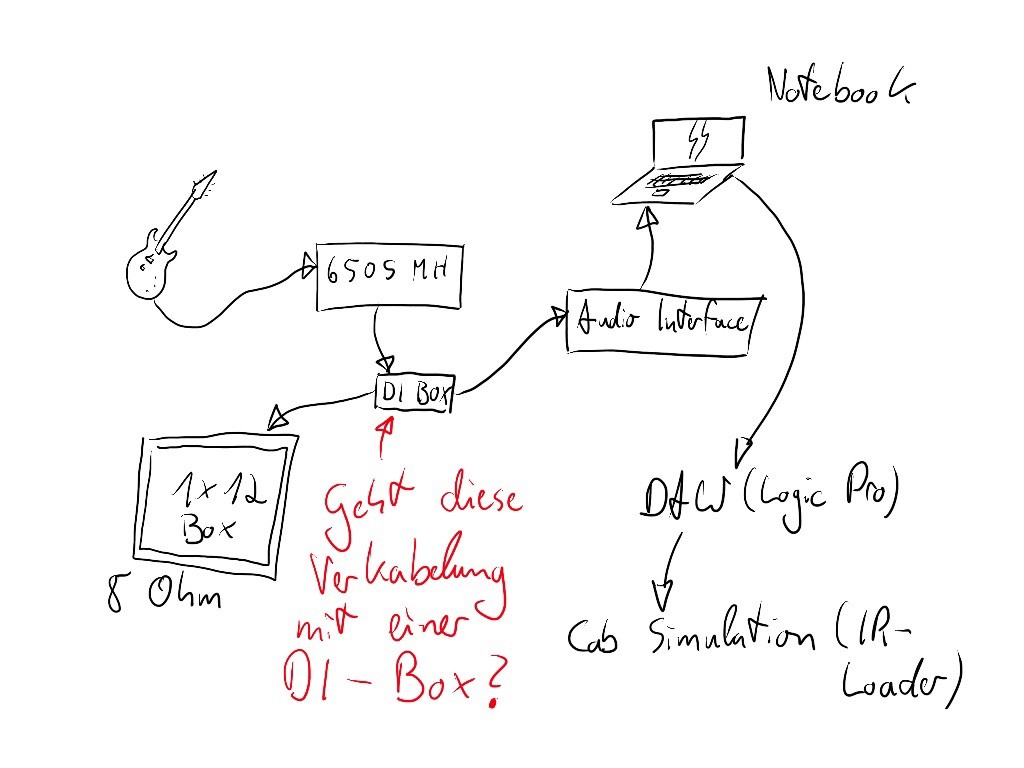 Notebook
6505 MH
Audio Interface
DI Box
1x12
Box
8 Ohm
Geht diese
Verkabelung
mit einer
DI-Box?
DAW (Logic Pro)
Cab Simulation (IR-
Loader)